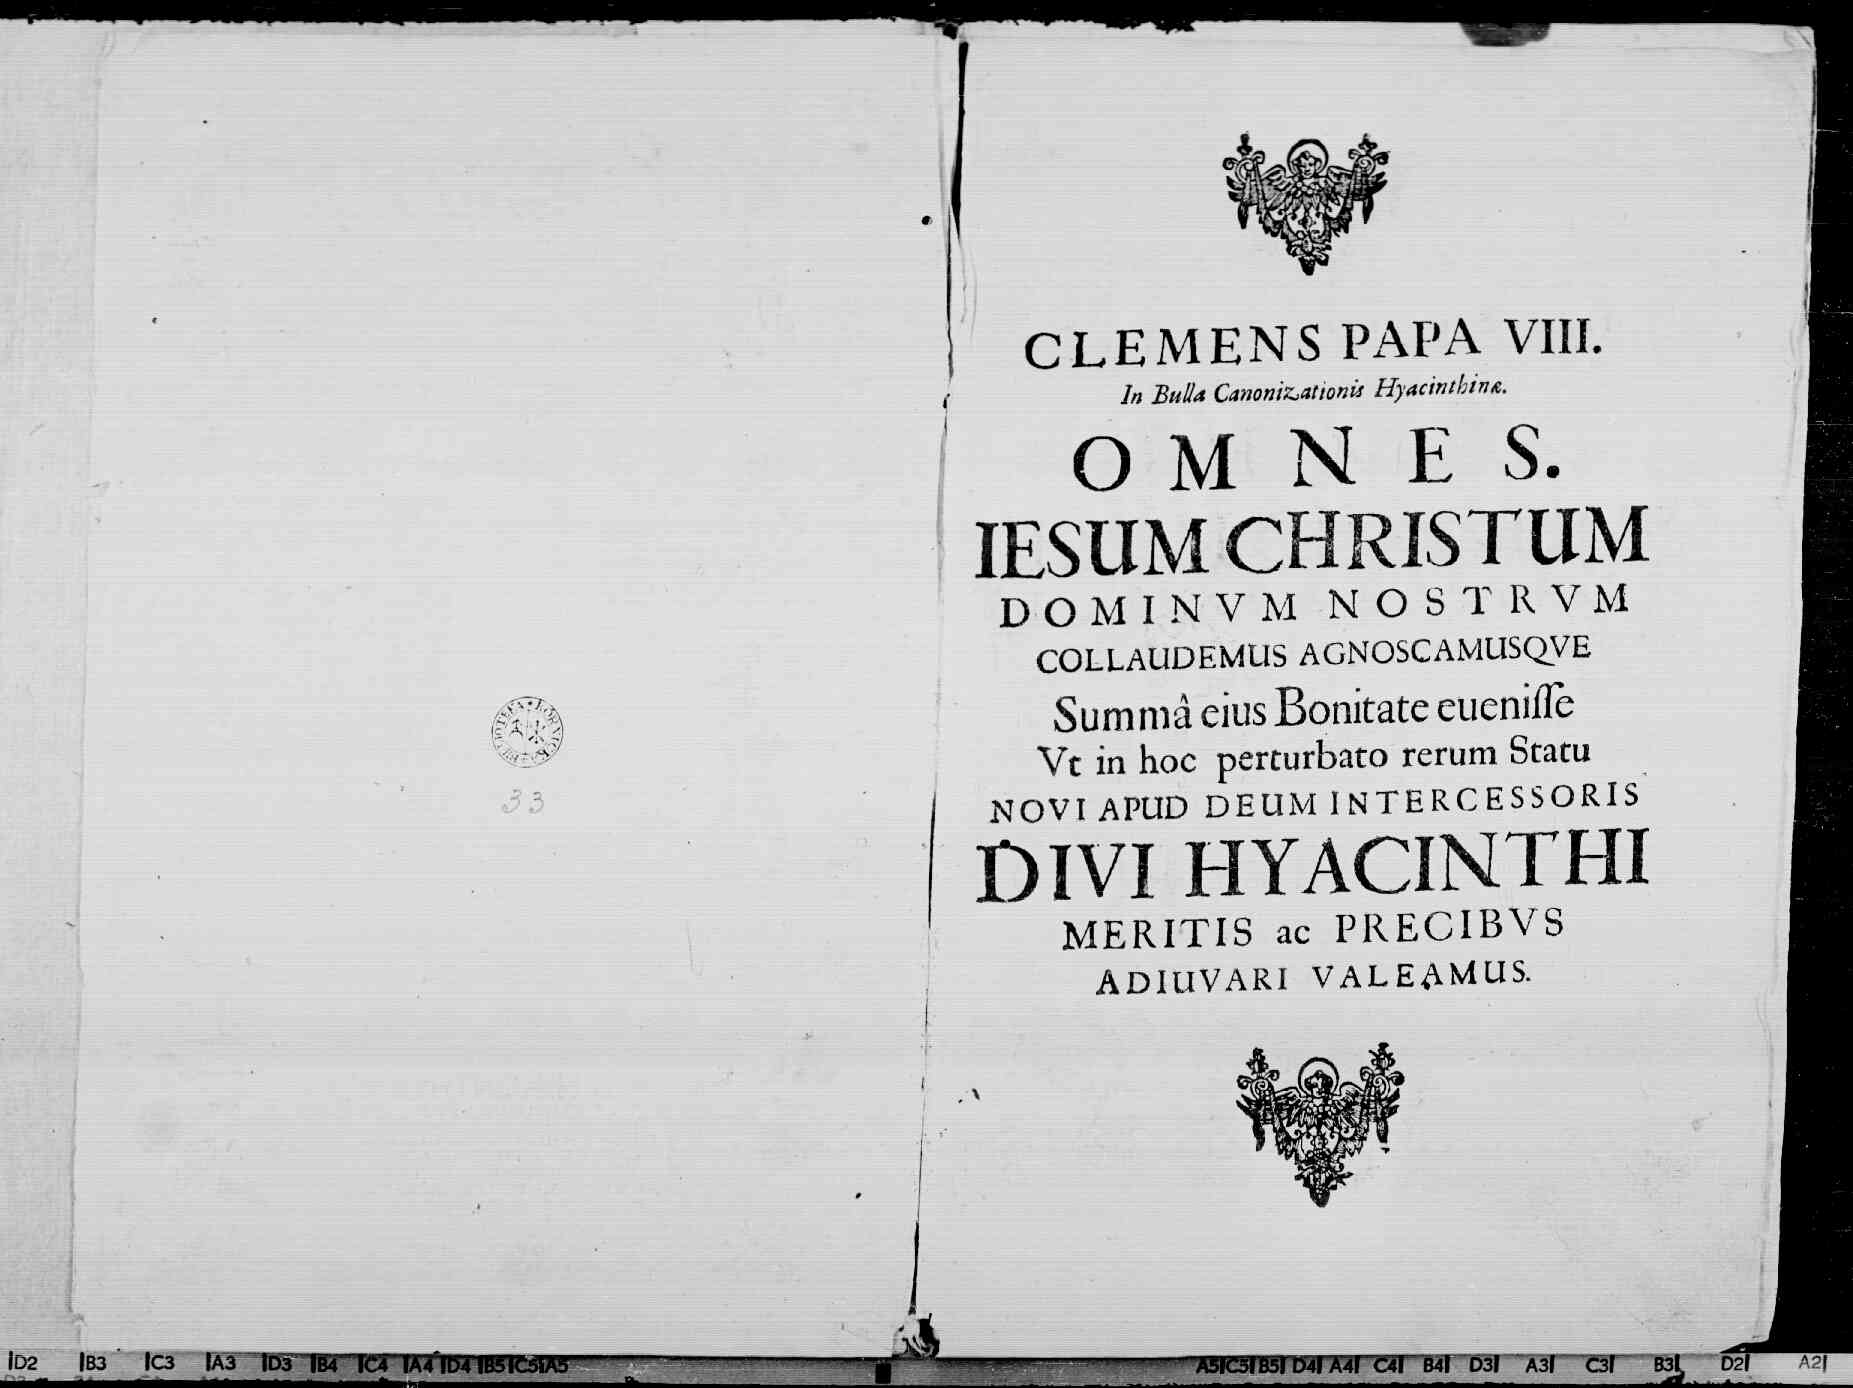 BIBLIOTEKA • KÓRNICKA
33
CLEMENS PAPA VIII.
In Bulla Canonizationis Hyacinthinæ.
OMNES.
IESUM CHRISTUM
DOMINVM NOSTRVM
COLLAUDEMUS AGNOSCAMUSQVE
Summâ eius Bonitate eueniſſe
Vt in hoc perturbato rerum Statu
NOVI APUD DEUM INTERCESSORIS
DIVI HYACINTHI
MERITIS ac PRECIBVS
ADIUVARI VALEAMUS.
D2 B3 C3 A3 D3 B4 C4 A4 D4 B5 C5 A5 A5 C5 B5 D4 A4 C4 B4 D3 A3 C3 B3 D2 A2